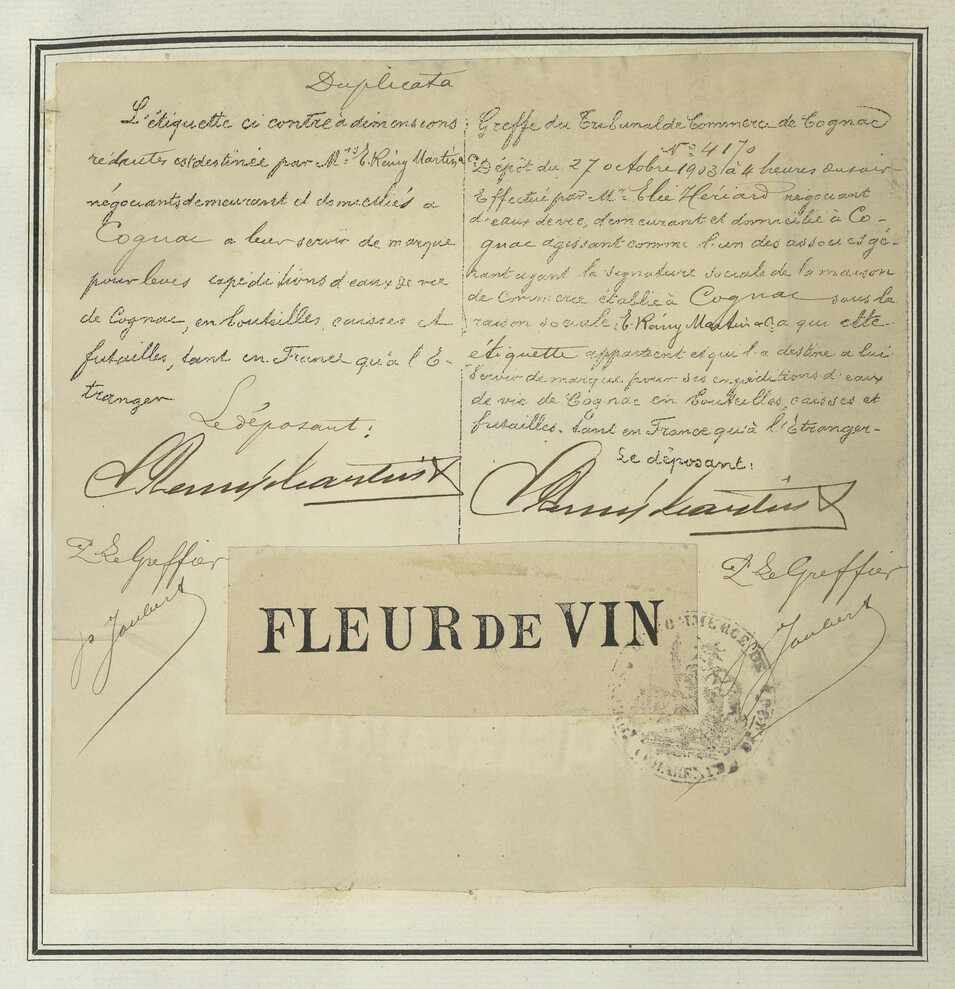 Duplicata
L'étiquette ci contre à dimensions
réduites est destinée par Mrs E. Rémy Martin & Co
négociants demeurant et domiciliés a
Cognac a leur servir de marque
pour leurs expéditions d'eaux de vie
de Cognac, en bouteilles, caisses et
futailles, tant en France qu'à l'E-
tranger
Le déposant:
E. Remy Martin & Co
P. Le Greffier
p Joubert
Greffe du Tribunal de Commerce de Cognac
No 4170
Dépôt du 27 octobre 1903 à 4 heures du soir
Effectué par Mr Elie Hériard négociant
d'eaux de vie, demeurant et domicilié à Co-
gnac agissant comme l'un des associés gé-
rant ayant la signature sociale de la maison
de Commerce établie à Cognac sous la
raison sociale: E. Rémy Martin & Co a qui cette
étiquette appartient et qui l'a destine a lui
Servir de marque pour ses expéditions d'eaux
de vie de Cognac en bouteilles, caisses et
futailles. tant en France qu'à l'Étranger-
Le déposant:
E. Remy Martin & Co
P. Le Greffier
Joubert
FLEUR DE VIN
COMMERCE DE
CHARENTE